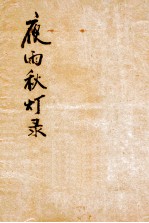 夜雨秋灯录